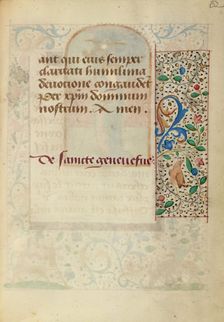 ant qui eius semper
claritati humilima
deuotione congaudet
per xpm dominum
nostrum. Amen.
De sancte geneuefue